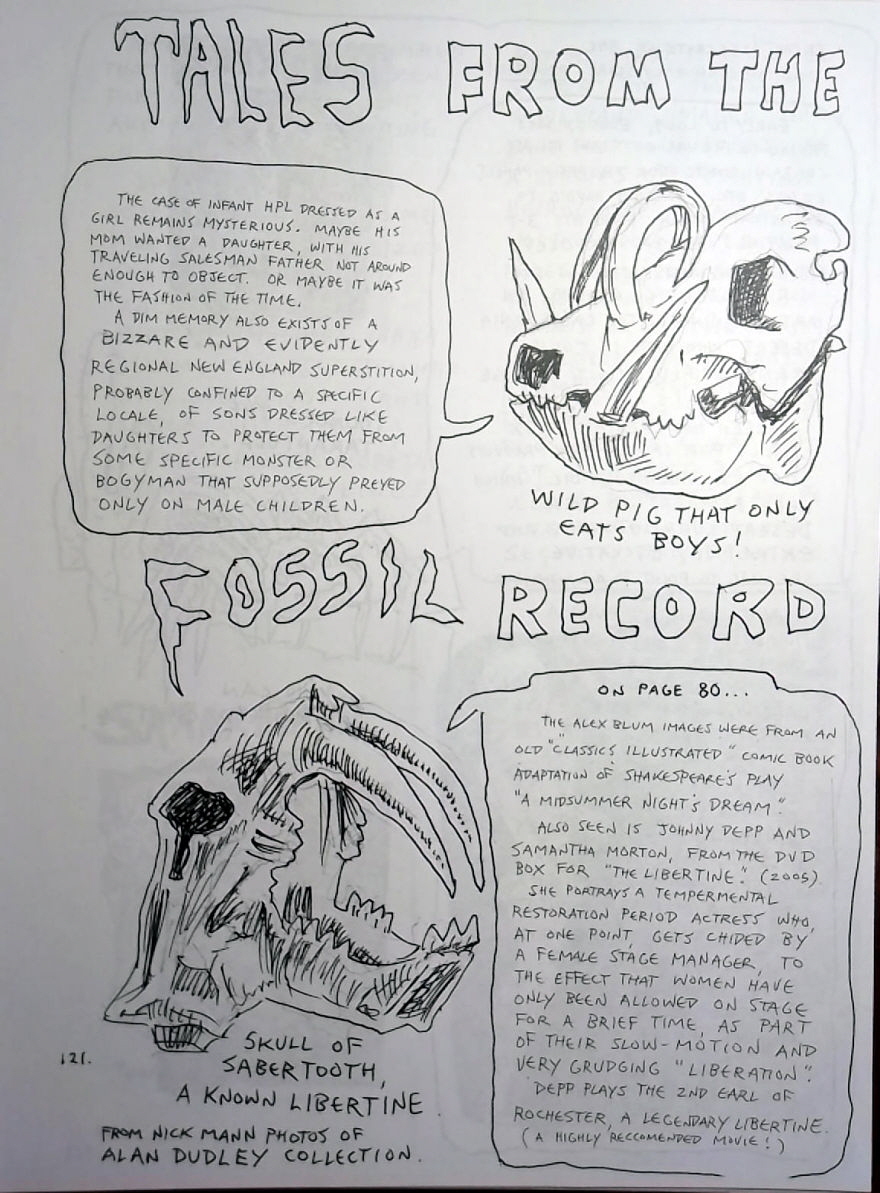 TALES FROM THE
THE CASE OF INFANT HPL DRESSED AS A
GIRL REMAINS MYSTERIOUS. MAYBE HIS
MOM WANTED A DAUGHTER, WITH HIS
TRAVELING SALESMAN FATHER NOT AROUND
ENOUGH TO OBJECT. OR MAYBE IT WAS
THE FASHION OF THE TIME.
A DIM MEMORY ALSO EXISTS OF A
BIZZARE AND EVIDENTLY
REGIONAL NEW ENGLAND SUPERSTITION,
PROBABLY CONFINED TO A SPECIFIC
LOCALE, OF SONS DRESSED LIKE
DAUGHTERS TO PROTECT THEM FROM
SOME SPECIFIC MONSTER OR
BOGYMAN THAT SUPPOSEDLY PREYED
ONLY ON MALE CHILDREN.
WILD PIG THAT ONLY
EATS BOYS!
FOSSIL RECORD
ON PAGE 80...
THE ALEX BLUM IMAGES WERE FROM AN
OLD "CLASSICS ILLUSTRATED" COMIC BOOK
ADAPTATION OF SHAKESPEARE'S PLAY
"A MIDSUMMER NIGHT'S DREAM".
ALSO SEEN IS JOHNNY DEPP AND
SAMANTHA MORTON, FROM THE DVD
BOX FOR "THE LIBERTINE." (2005).
SHE PORTRAYS A TEMPERMENTAL
RESTORATION PERIOD ACTRESS WHO,
AT ONE POINT, GETS CHIDED BY
A FEMALE STAGE MANAGER, TO
THE EFFECT THAT WOMEN HAVE
ONLY BEEN ALLOWED ON STAGE
FOR A BRIEF TIME, AS PART
OF THEIR SLOW-MOTION AND
VERY GRUDGING "LIBERATION".
DEPP PLAYS THE 2ND EARL OF
ROCHESTER, A LEGENDARY LIBERTINE.
(A HIGHLY RECCOMENDED MOVIE!)
SKULL OF
SABERTOOTH,
A KNOWN LIBERTINE.
121.
FROM NICK MANN PHOTOS OF
ALAN DUDLEY COLLECTION.